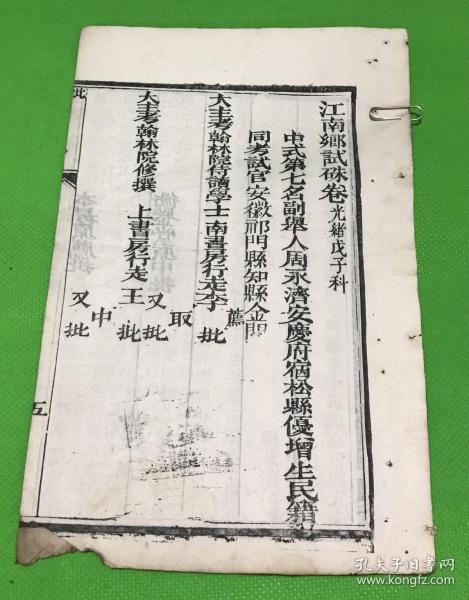 江南鄉試硃卷光緒戊子科
中式第七名副舉人周永濟安慶府宿松縣優增生民籍
同考試官安徽祁門縣知縣金閱
薦
大主考翰林院侍讀學士南書房行走李 批
取
又批
大主考翰林院修撰 上書房行走王 批
中
又批
五
孔夫子旧书网
www.kongfz.com